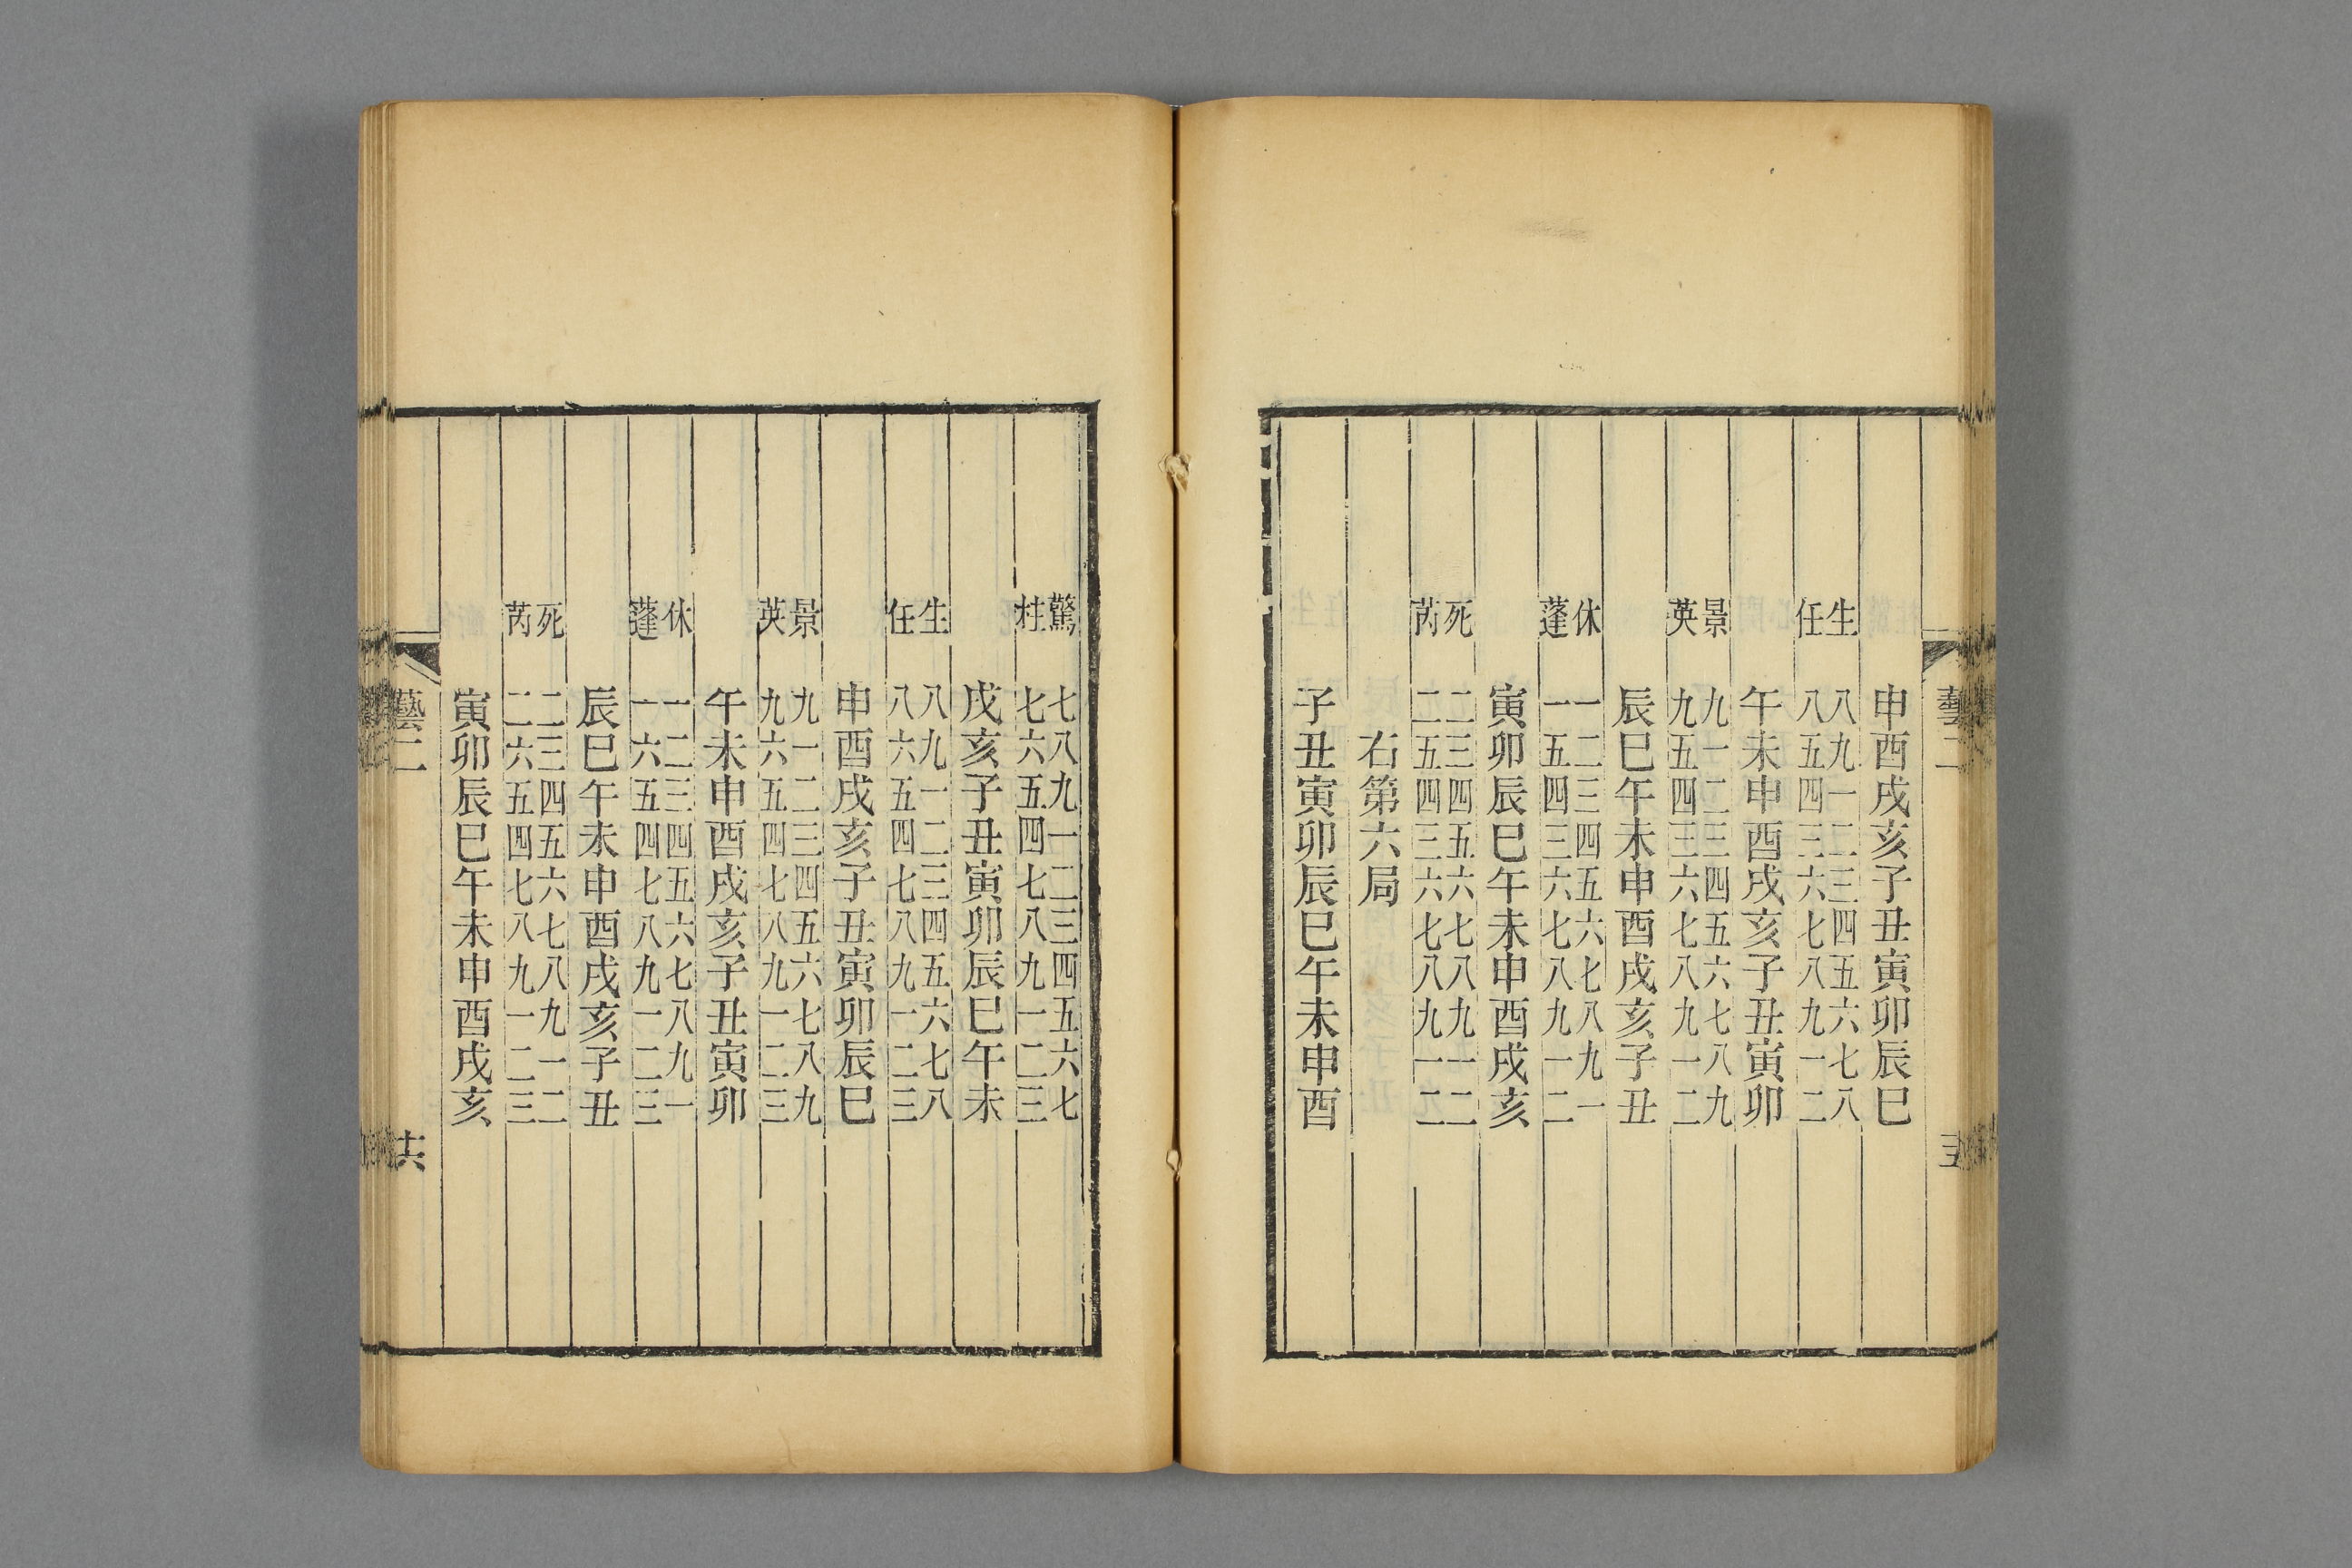 申酉戌亥子丑寅卯辰巳
生 八九一二三四五六七八
任 八五四三六七八九一二
午未申酉戌亥子丑寅卯
景 九一二三四五六七八九
英 九五四三六七八九一二
辰巳午未申酉戌亥子丑
休 一二三四五六七八九一
蓬 一五四三六七八九一二
寅卯辰巳午未申酉戌亥
死 二三四五六七八九一二
芮 二五四三六七八九一二
右第六局
子丑寅卯辰巳午未申酉
驚 七八九一二三四五六七
柱 七六五四七八九一二三
戌亥子丑寅卯辰巳午未
生 八九一二三四五六七八
任 八六五四七八九一二三
申酉戌亥子丑寅卯辰巳
景 九一二三四五六七八九
英 九六五四七八九一二三
午未申酉戌亥子丑寅卯
休 一二三四五六七八九一
蓬 一六五四七八九一二三
辰巳午未申酉戌亥子丑
死 二三四五六七八九一二
芮 二六五四七八九一二三
寅卯辰巳午未申酉戌亥
藝二
十六